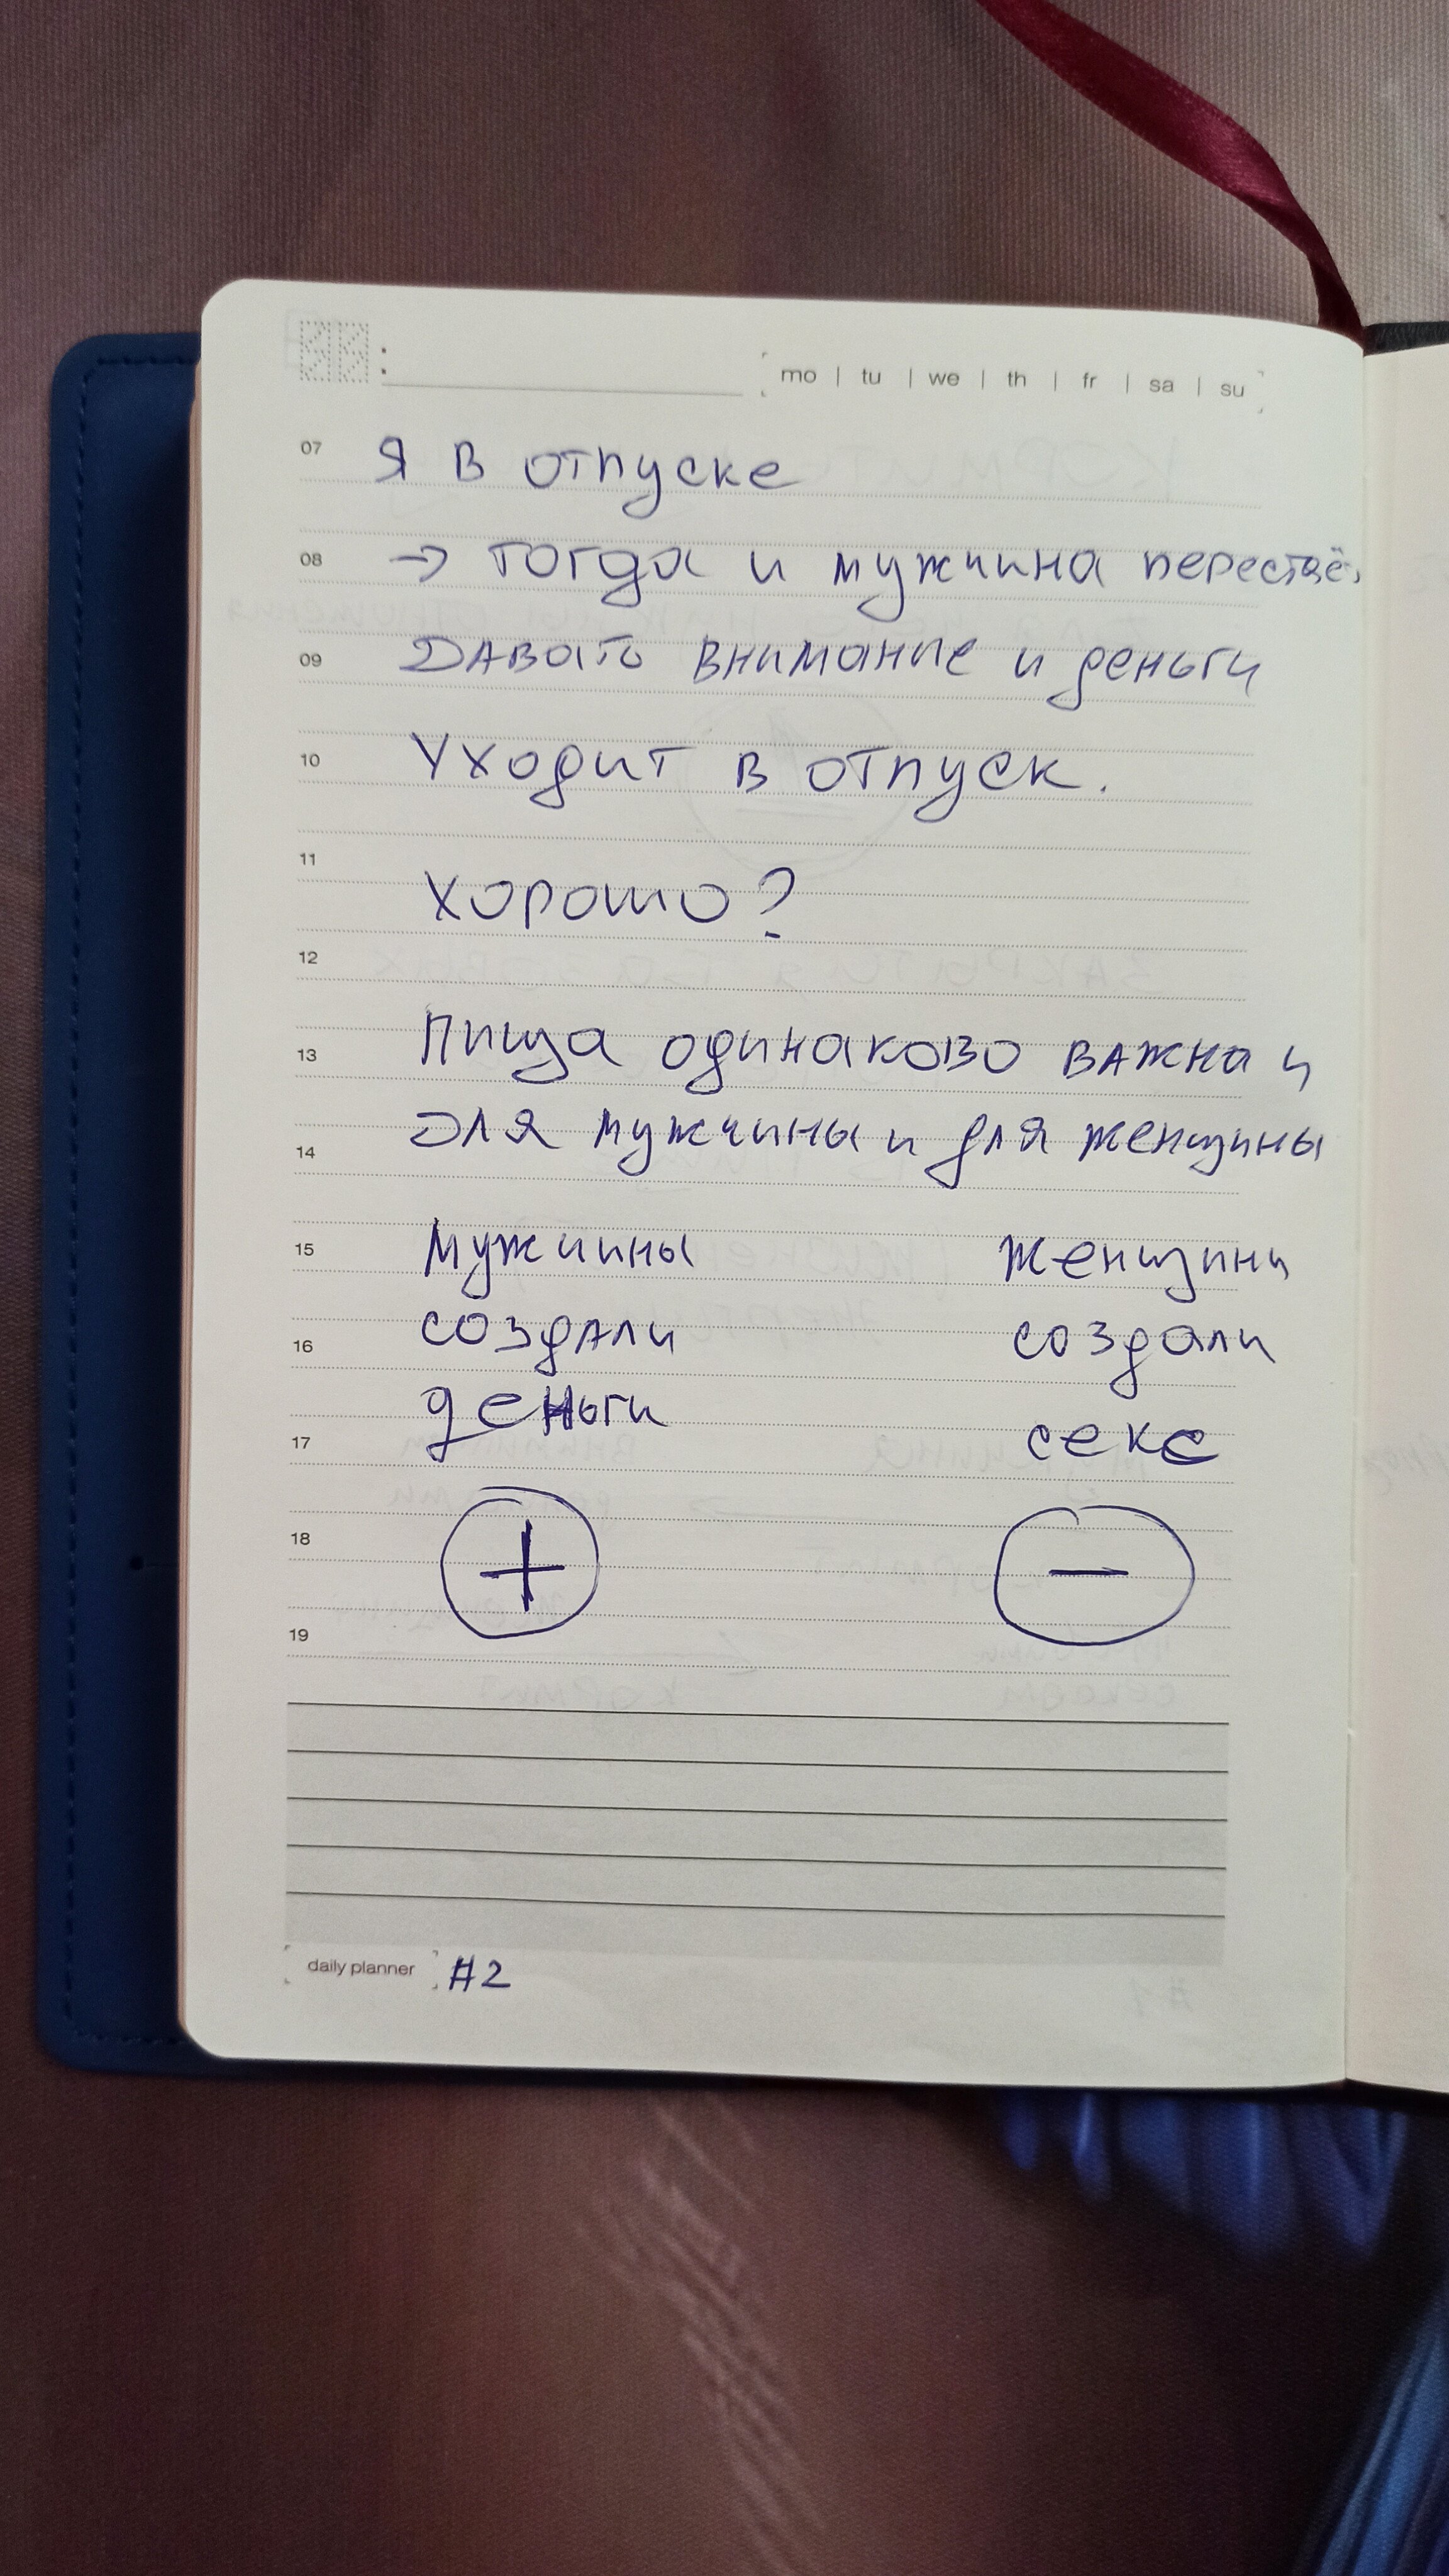 mo | tu | we | th | fr | sa | su
07 Я в отпуске
08 → тогда и мужчина перестаё
09 Давать внимание и деньги
10 Уходит в отпуск.
11 Хорошо?
12
13 Пища одинаково важна и
14 для мужчины и для женщины
15 Мужчины женщины
16 создали создали
17 деньги секс
18 + −
19
daily planner #2